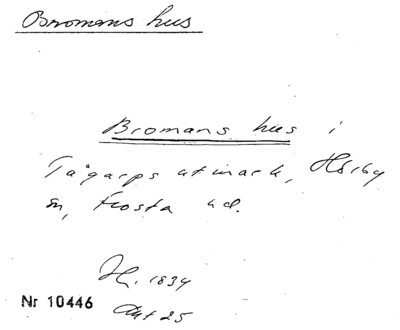 Bromans hus
Bromans hus i
Tågarps utmark, Hörby
sn, Frosta hd.
H. 1834
Nr 10446
Akt 25